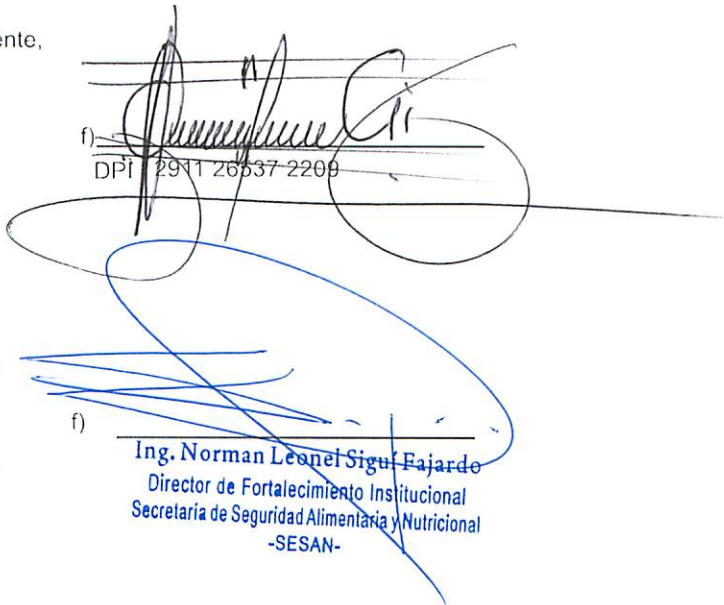 ente,
f)
DPI 2911 26537 2209
f)
Ing. Norman Leonel Siguí Fajardo
Director de Fortalecimiento Institucional
Secretaría de Seguridad Alimentaria y Nutricional
-SESAN-